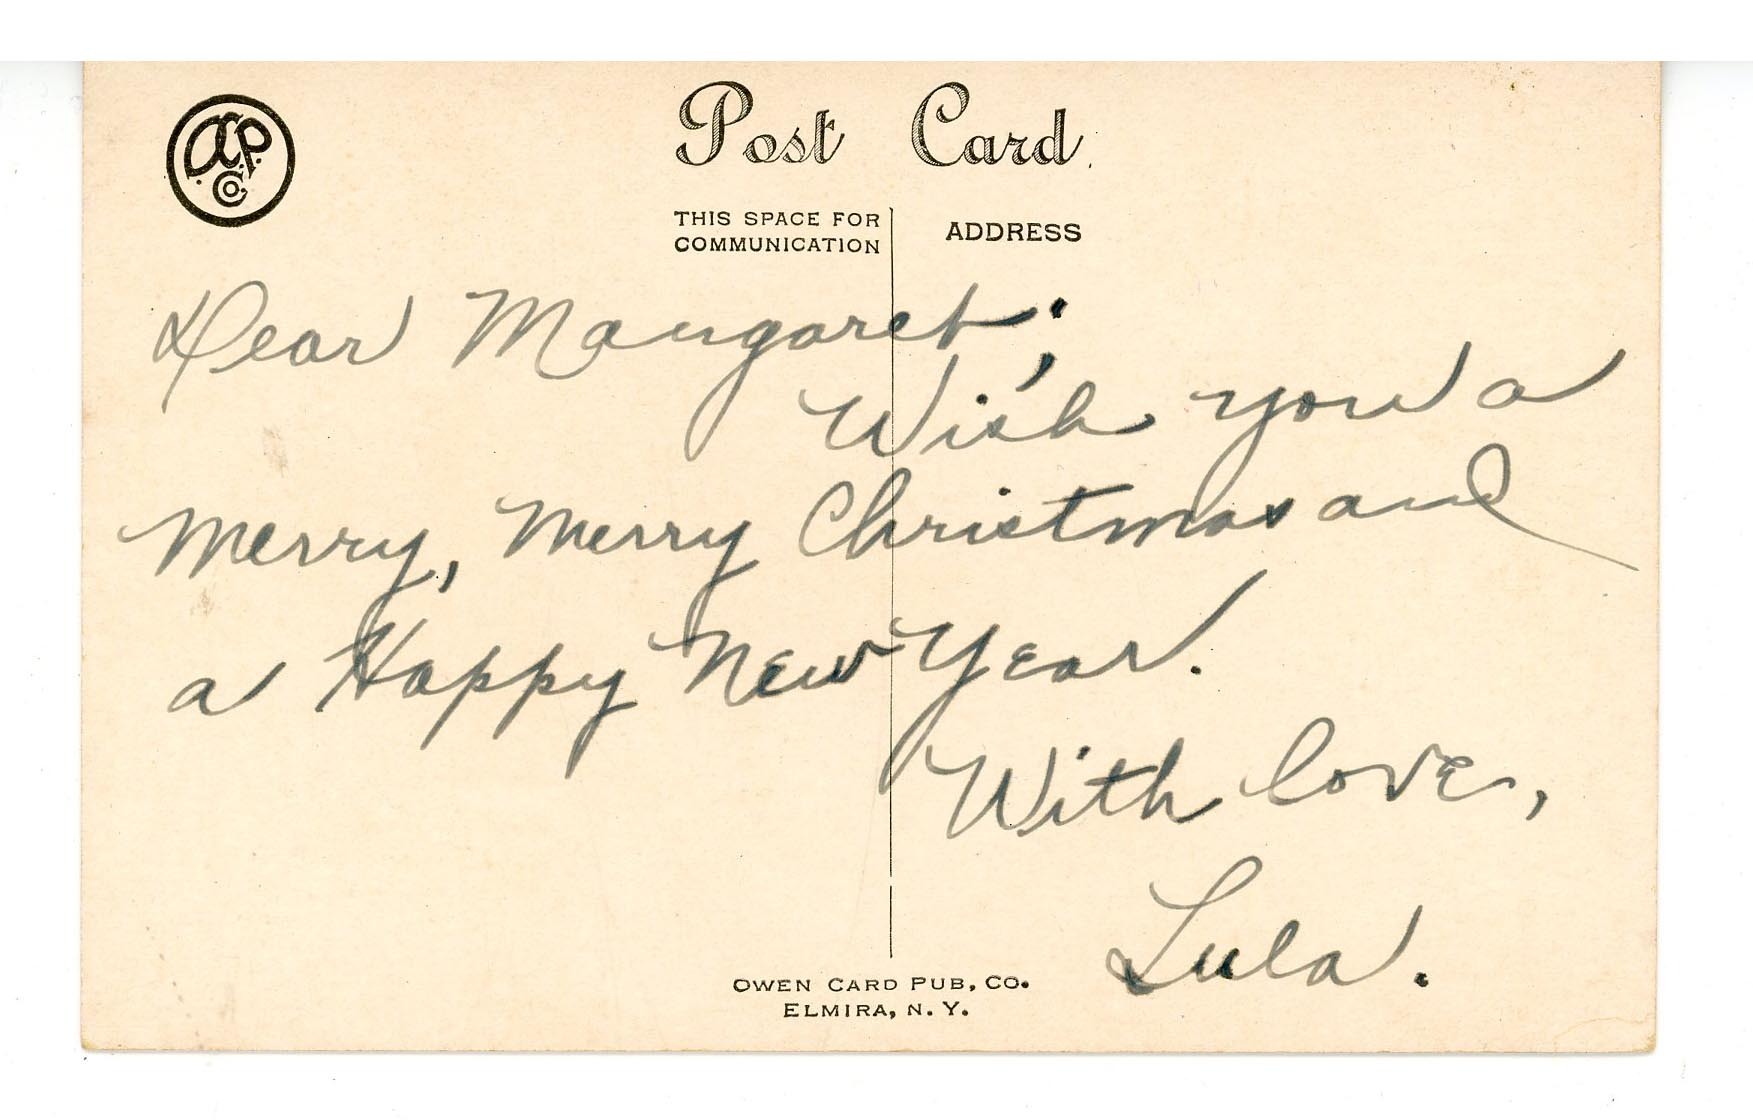 Post Card
THIS SPACE FOR
COMMUNICATION
ADDRESS
Dear Margaret;
Wish you a
merry, merry Christmas and
a Happy New Year.
With love,
Lula.
OWEN CARD PUB, CO.
ELMIRA, N. Y.